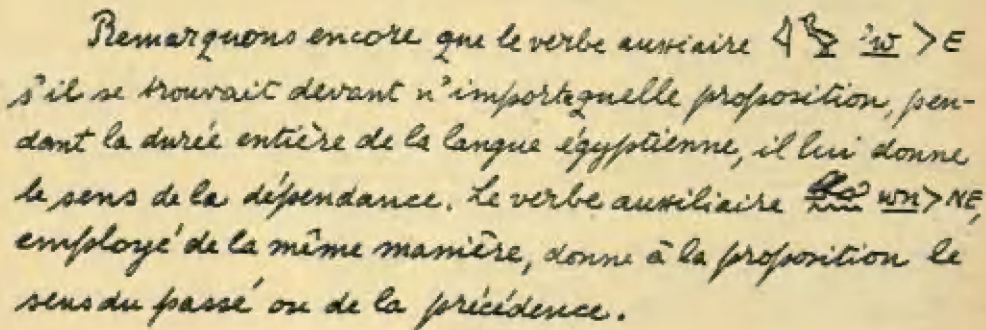 Remarquons encore que le verbe auxiaire 𓇋𓅱 ꞽw > E
s'il se trouvait devant n'importequelle proposition, pen-
dant la durée entière de la langue égyptienne, il lui donne
le sens de la dépendance. Le verbe auxiliaire wn > NE,
employé de la même manière, donne à la proposition le
sens du passé ou de la précédence.